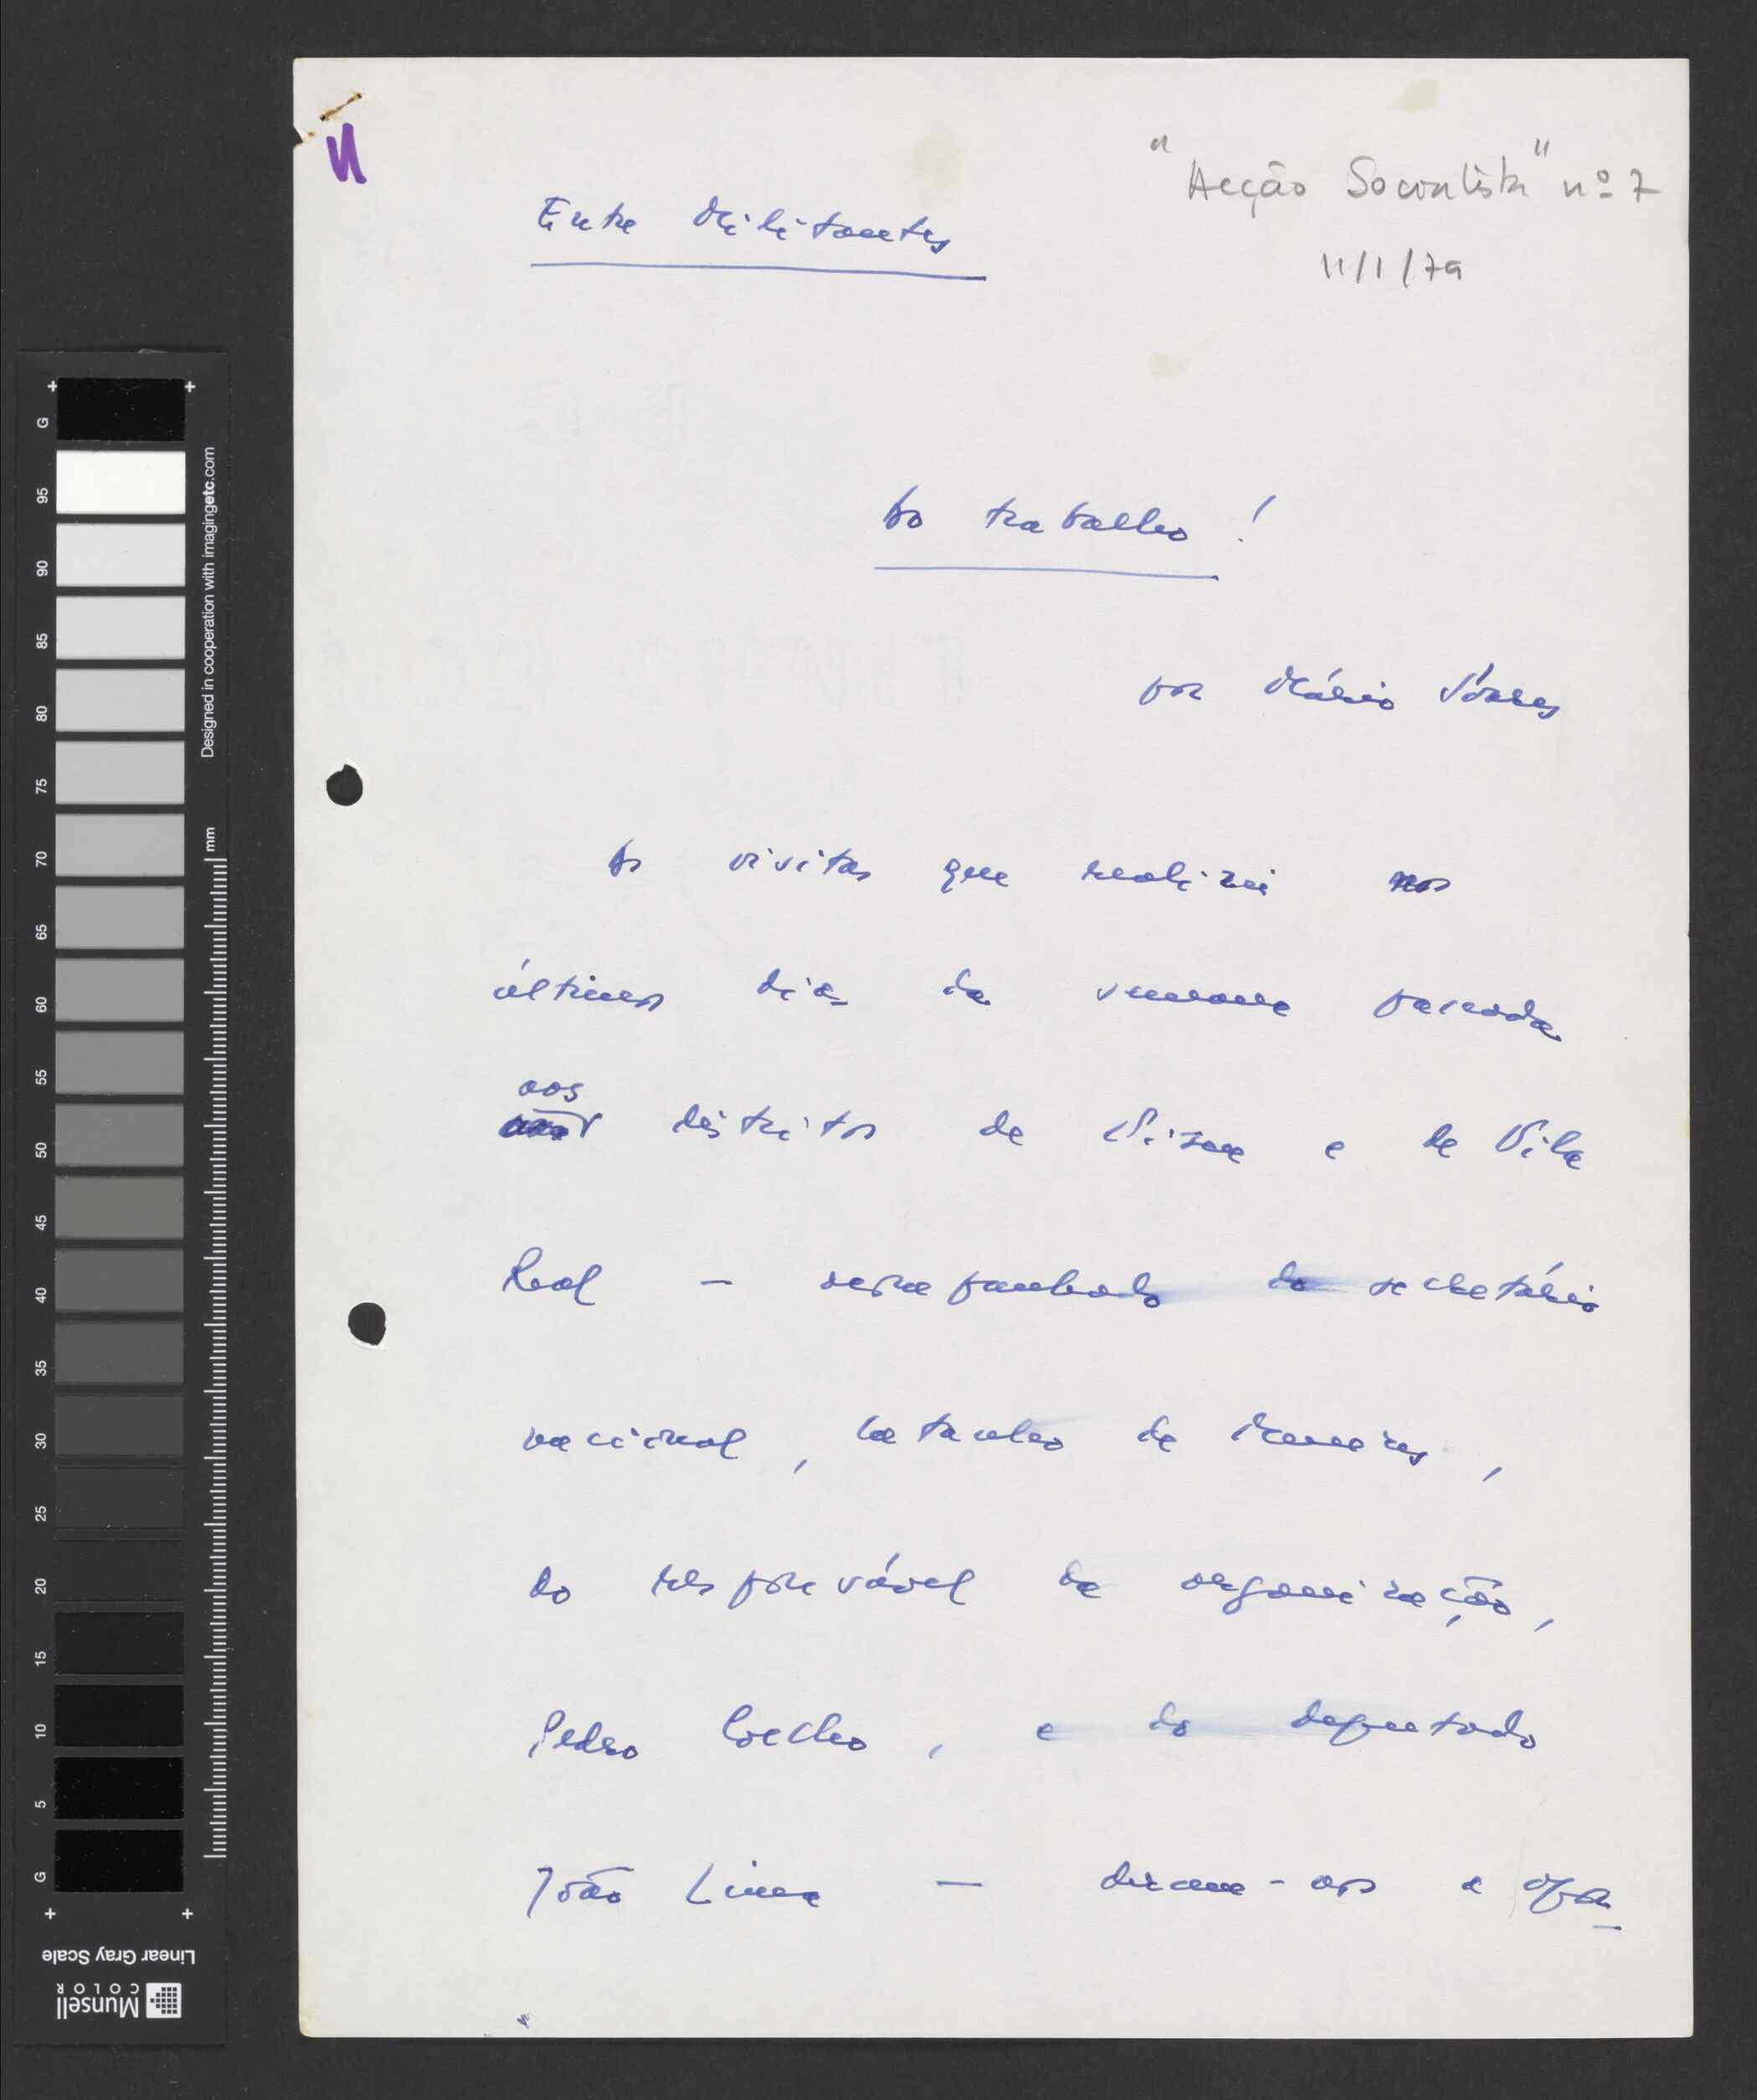 "Acção Socialista" nº 7
11/1/79
Entre Militantes
Ao trabalho!
por Mário Soares
As visitas que realizei nos
últimos dias da semana passada
aos
distritos de Viseu e de Vila
Real — acompanhado do secretário
nacional, de
do responsável da organização,
Pedro Coelho, e do deputado
João Lima — deram-nos a opor
G 95 90 85 80 75 70 65 60 55 50 45 40 35 30 25 20 15 10 5 G
Designed in cooperation with imagingetc.com
mm
Linear Gray Scale
Munsell
COLOR